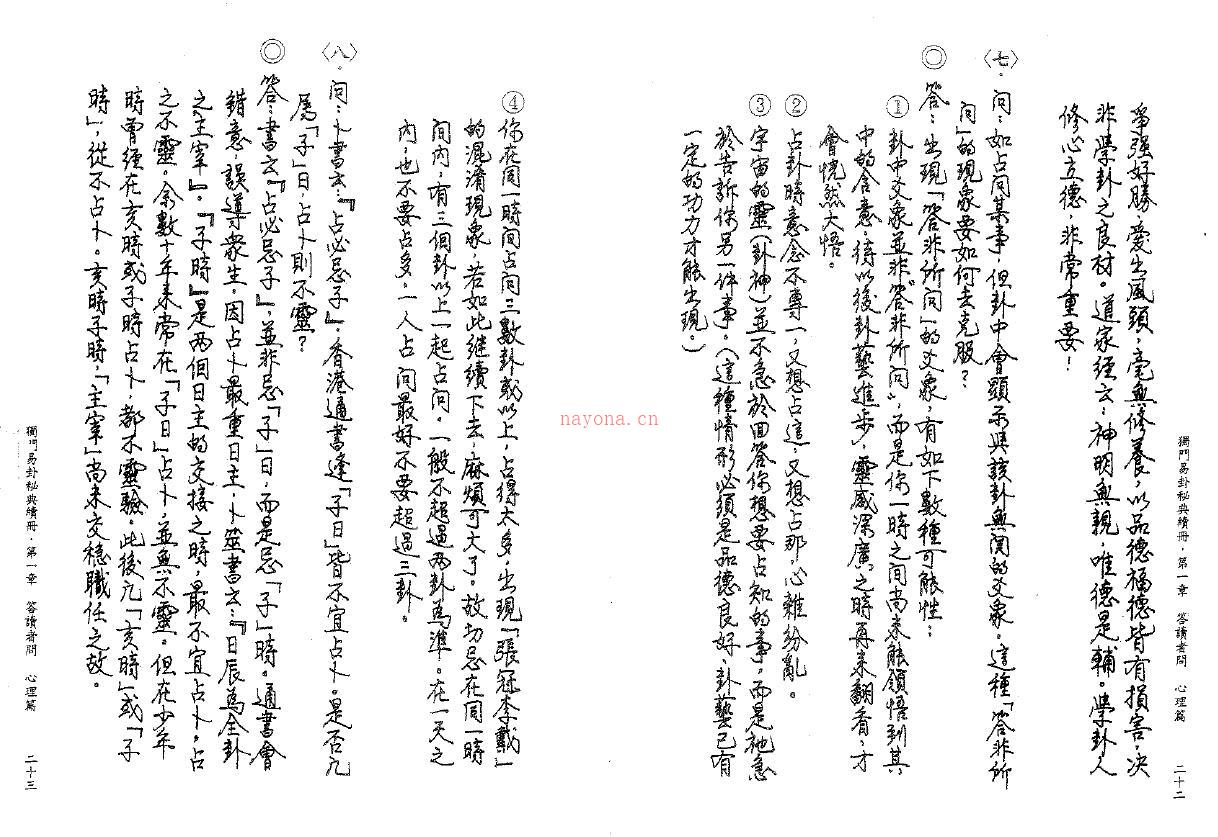 爭强好勝愛出風頭，毫無修養，以品德福德皆有損害，决
非學卦之良材。道家經云：神明無親，唯德是輔。學卦人
修心立德，非常重要！
〈七〉．问：如占问某事，但卦中會顯示與該卦無関的爻象。這種「答非所
问」的現象要如何去克服？
◎答：出現「答非所问」的爻象，有如下數種可能性：
①卦中爻象並非“答非所问”，而是你一時之间尚未能領悟到其
中的含意。待以後卦藝進步，靈感深廣之時再来翻看，才
會恍然大悟。
②占卦時意念不專一，又想占這，又想占那，心雜紛亂。
③宇宙的靈（卦神）並不急於回答你想要占知的事，而是祂急
於告訴你另一件事。（這種情形必須是品德良好、卦藝已有
一定的功力才能出現。）
獨門易卦秘典續冊．第一章　答讀者問　心理篇　二十二
④你在同一時间占问三數卦或以上，占得太多，出現「張冠李戴」
的混淆現象，若如此继续下去，麻煩可大了。故切忌在同一時
间内，有三個卦以上一起占问，一般不超過两卦為準。在一天之
内，也不要占多，一人占问最好不要超過三卦。
〈八〉．问：卜書云：『占必忌子』，香港通書逢「子日」皆不宜占卜。是否凡
属「子」日，占卜則不靈？
◎答：書云『占必忌子』，並非忌「子」日，而是忌「子」時。通書會
錯意，誤導衆生。因占卜最重日主，卜筮書云：『日辰為全卦
之主宰』。『子時』是两個日主的交接之時，最不宜占卜。占
之不靈。余數十年来常在「子日」占卜，並無不靈。但在少年
時曾經在亥時或子時占卜，都不靈驗。此後凡「亥時」或「子
時」，從不占卜。亥時子時，「主宰」尚未交穩職任之故。
獨門易卦秘典續冊．第一章　答讀者問　心理篇　二十三
nayona.cn